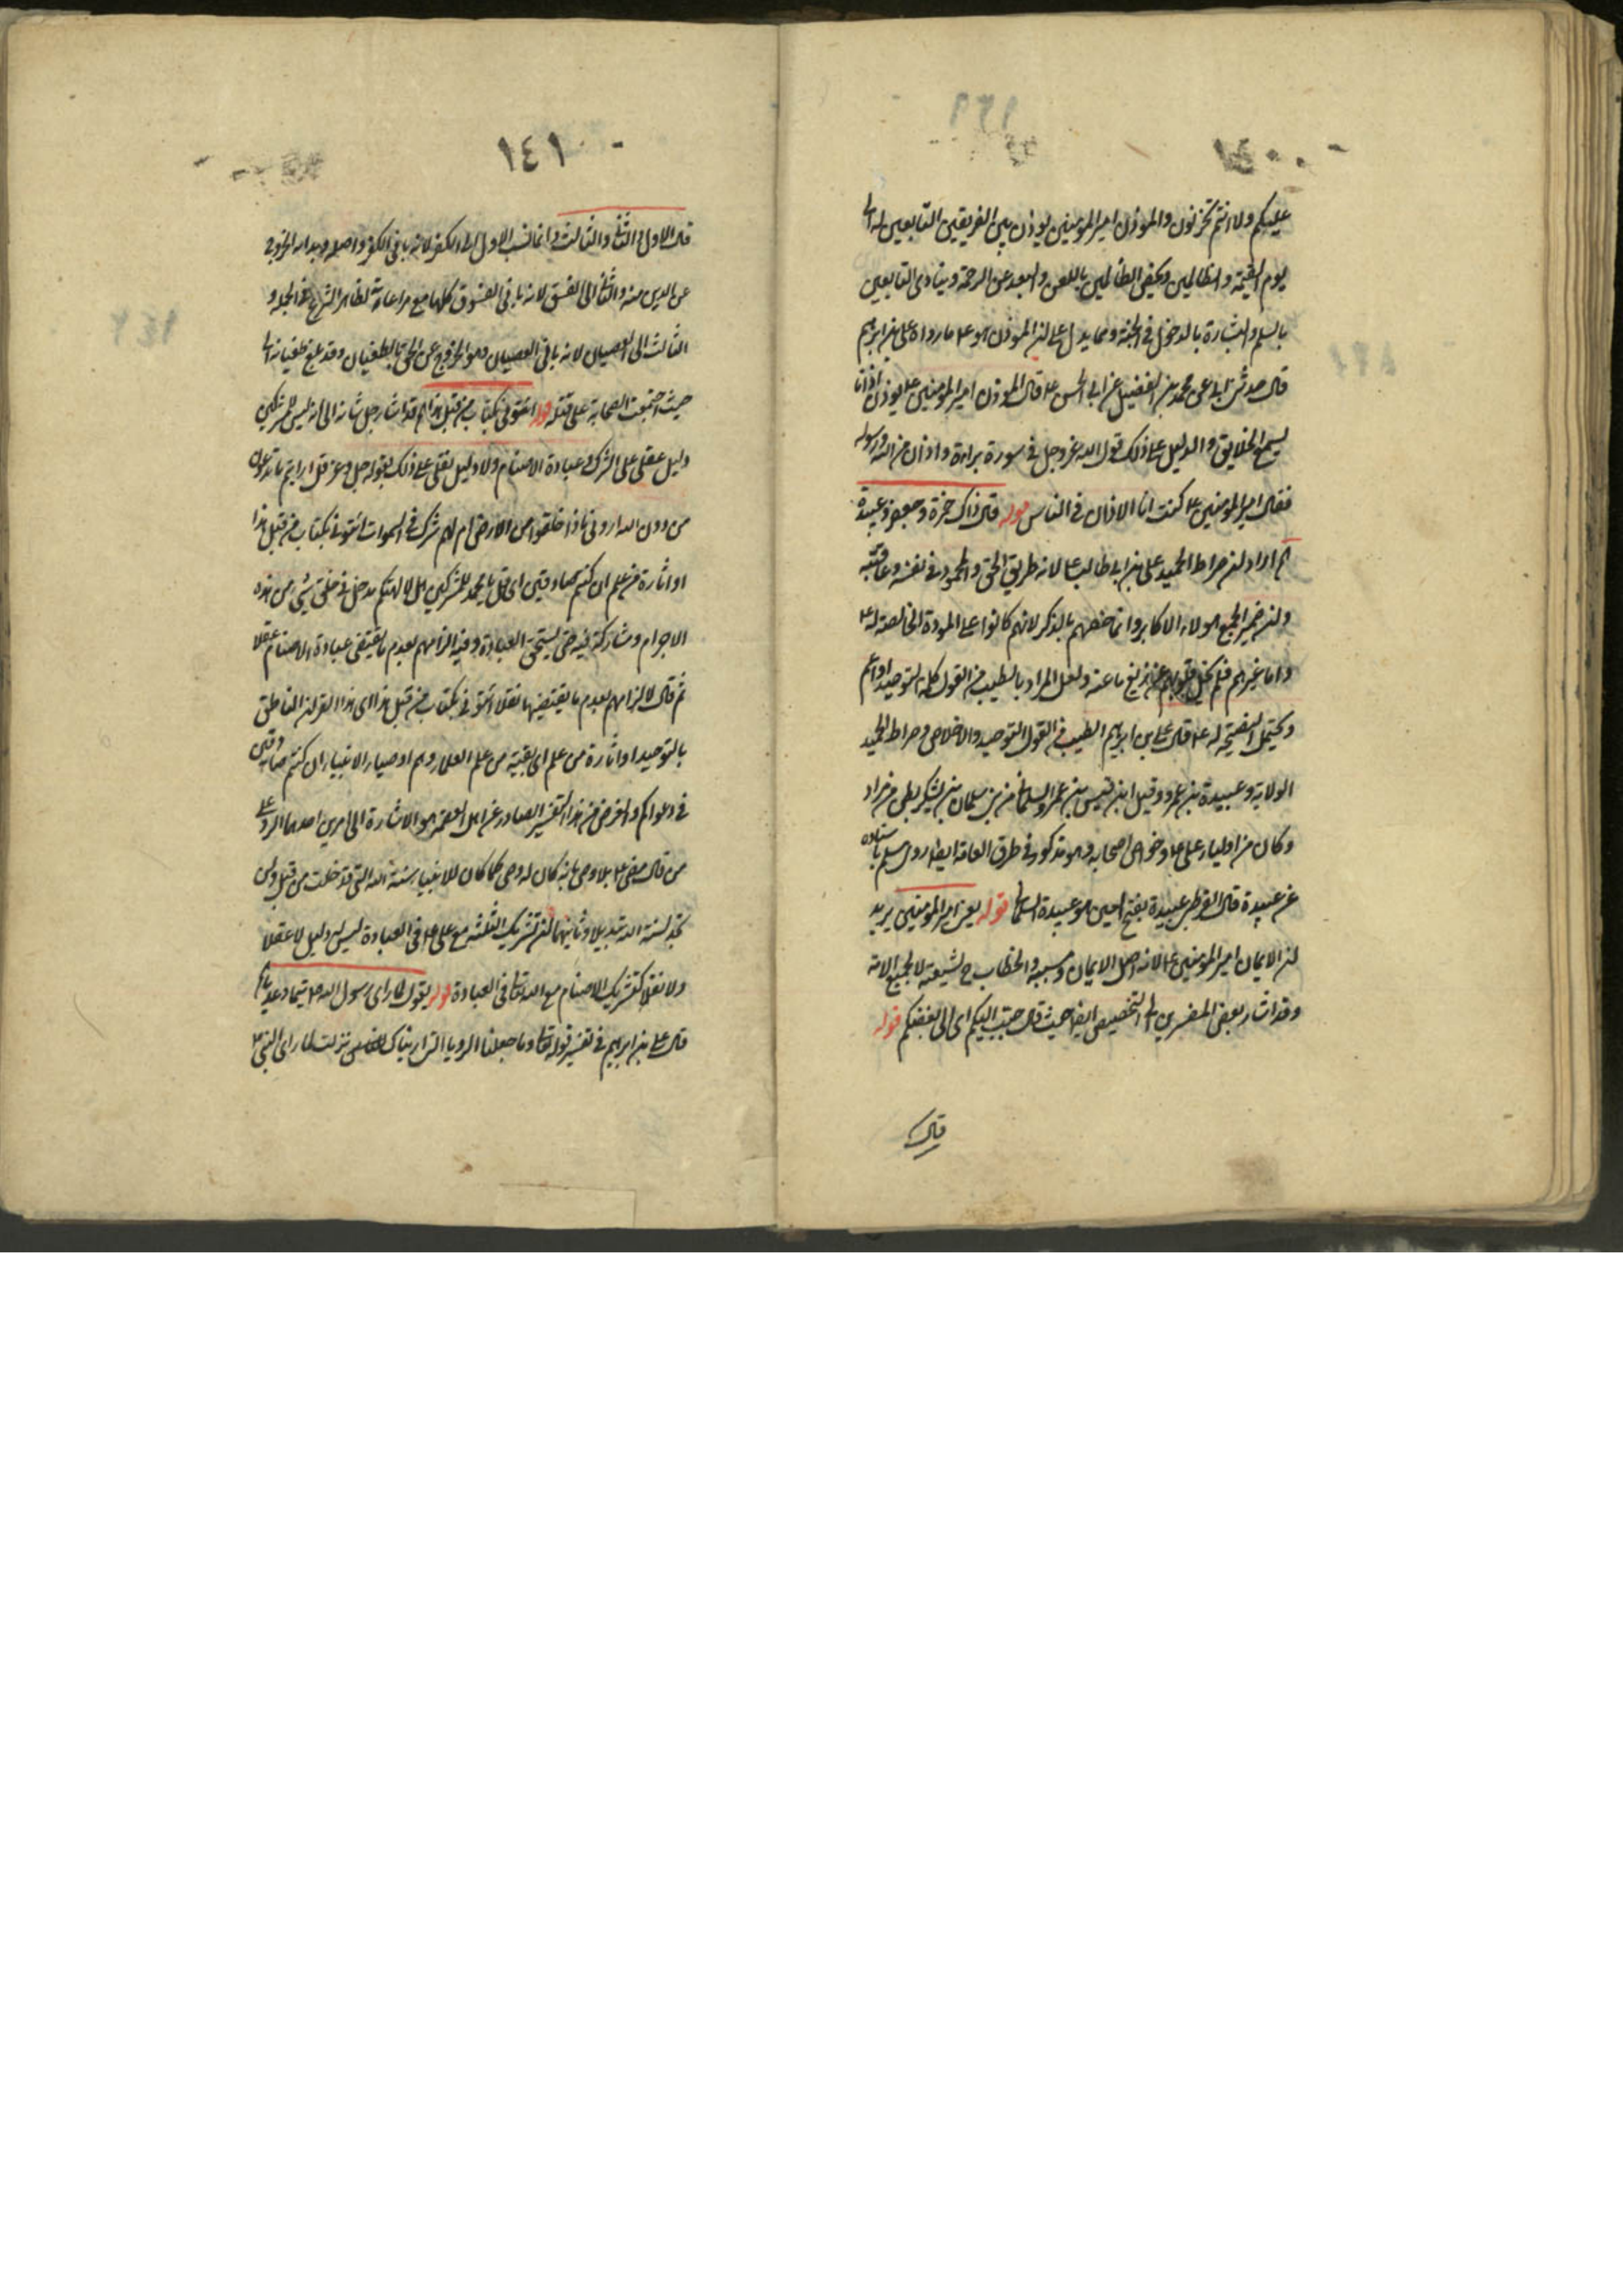 عليكم ولا انتم تحزنون والموذن امير المومنين يوذن بين الفريقين التابعين له الى
يوم القيمة والظالمين ويخص الظالمين باللعن والبعد عن الرحمة وينادى التابعين
بالسلم والبشارة بالدخول فى الجنة ومما يدل على ان الموذن هو ع ما رواه على بن ابرهيم
قال حدثنى ابى عن محمد بن الفضيل عن ابى الحسن ع قال الموذن امير المومنين ع يوذن اذانا
يسمع الخلايق والدليل على ذلك قول الله عز وجل فى سورة براءة واذان من الله ورسوله
فقال امير المومنين ع كنت انا الاذان فى الناس قوله قال ذاك حمزة وجعفر وعبيدة
اراد ان صراط الحميد على بن ابى طالب ع لانه طريق الحق والمحمود فى نفسه وعاقبته
وان ضمير الجمع هولاء الاكابر وانما خصهم بالذكر لانهم كانوا على المودة الخالصة له ع
واما غيرهم فلم يخل قلوبهم عن زيغ ما عنه ولعل المراد بالطيب من القول كلمة التوحيد او اعم
ويحتمل النصيحة له ع قال على بن ابرهيم الطيب من القول التوحيد والاخلاص وصراط الحميد
الولاية وعبيدة بن عمرو وقيل ابن قيس بن عمرو السلمانى من بنى سلمان بن يشكر بطن من مراد
وكان من اولياء على ع وخواص اصحابه وهو مذكور فى طرق العامة ايضا روى مسلم باسناده
عن عبيدة قال القرطبى عبيدة بفتح العين هو عبيدة السلمانى قوله يعنى امير المومنين يريد
ان الايمان امير المومنين ع لانه اصل الايمان وسببه والخطاب ح لشيعته لا لجميع الامة
وقد اشار بعض المفسرين الى التخصيص ايضا حيث قال حبب اليكم اى الى بعضكم قوله
قال
١٤١
قال الاول والثانى والثالث انما نسب الاول الى الكفر لانه بانى الكفر واصله وبداله الخروج
عن الدين منه والثانى الى الفسق لانه بانى الفسوق كلها مع مراعاته لظاهر الشرع فى الجملة و
الثالث الى العصيان لانه بانى العصيان وهو الخروج عن الحق بالطغيان وقد بلغ طغيانه الى
حيث اجتمعت الصحابة على قتله قوله ائتونى بكتاب من قبل هذا قد اشار جل شانه الى انه ليس للمشركين
دليل عقلى على الشرك وعبادة الاصنام ولا دليل نقلى على ذلك بقوله جل وعز قل ارايتم ما تدعون
من دون الله ارونى ماذا خلقوا من الارض ام لهم شرك فى السموات ائتونى بكتاب من قبل هذا
او اثارة من علم ان كنتم صادقين اى قل يا محمد للمشركين هل لالهتكم مدخل فى خلق شىء من هذه
الاجرام ومشاركة فيه حتى يستحق العبادة وفيه الزامهم بعدم ما يقتضى عبادة الاصنام عقلا
ثم قال لالزامهم بعدم ما يقتضيها نقلا ائتونى بكتاب من قبل هذا اى هذا القران الناطق
بالتوحيد او اثارة من علم اى بقية من علم العلماء وهم اوصياء الانبياء ان كنتم صادقين
فى دعواكم والغرض من هذا التفسير الصادر عن اهل العصمة هو الاشارة الى امرين احدهما الرد على
من قال مضى ع بلا وصى بانه كان له وصى كما كان للانبياء سنة الله التى قد خلت من قبل ولن
تجد لسنة الله تبديلا وثانيهما ان تشريك الثلثة مع على ع فى العبادة ليس له دليل لا عقلا
ولا نقلا كتشريك الاصنام مع الله تعالى فى العبادة قوله يقول لما راى رسول الله ص تيما وعديا
قال على بن ابرهيم فى تفسير قوله تعالى وما جعلنا الرويا التى اريناك نزلت لما راى النبى